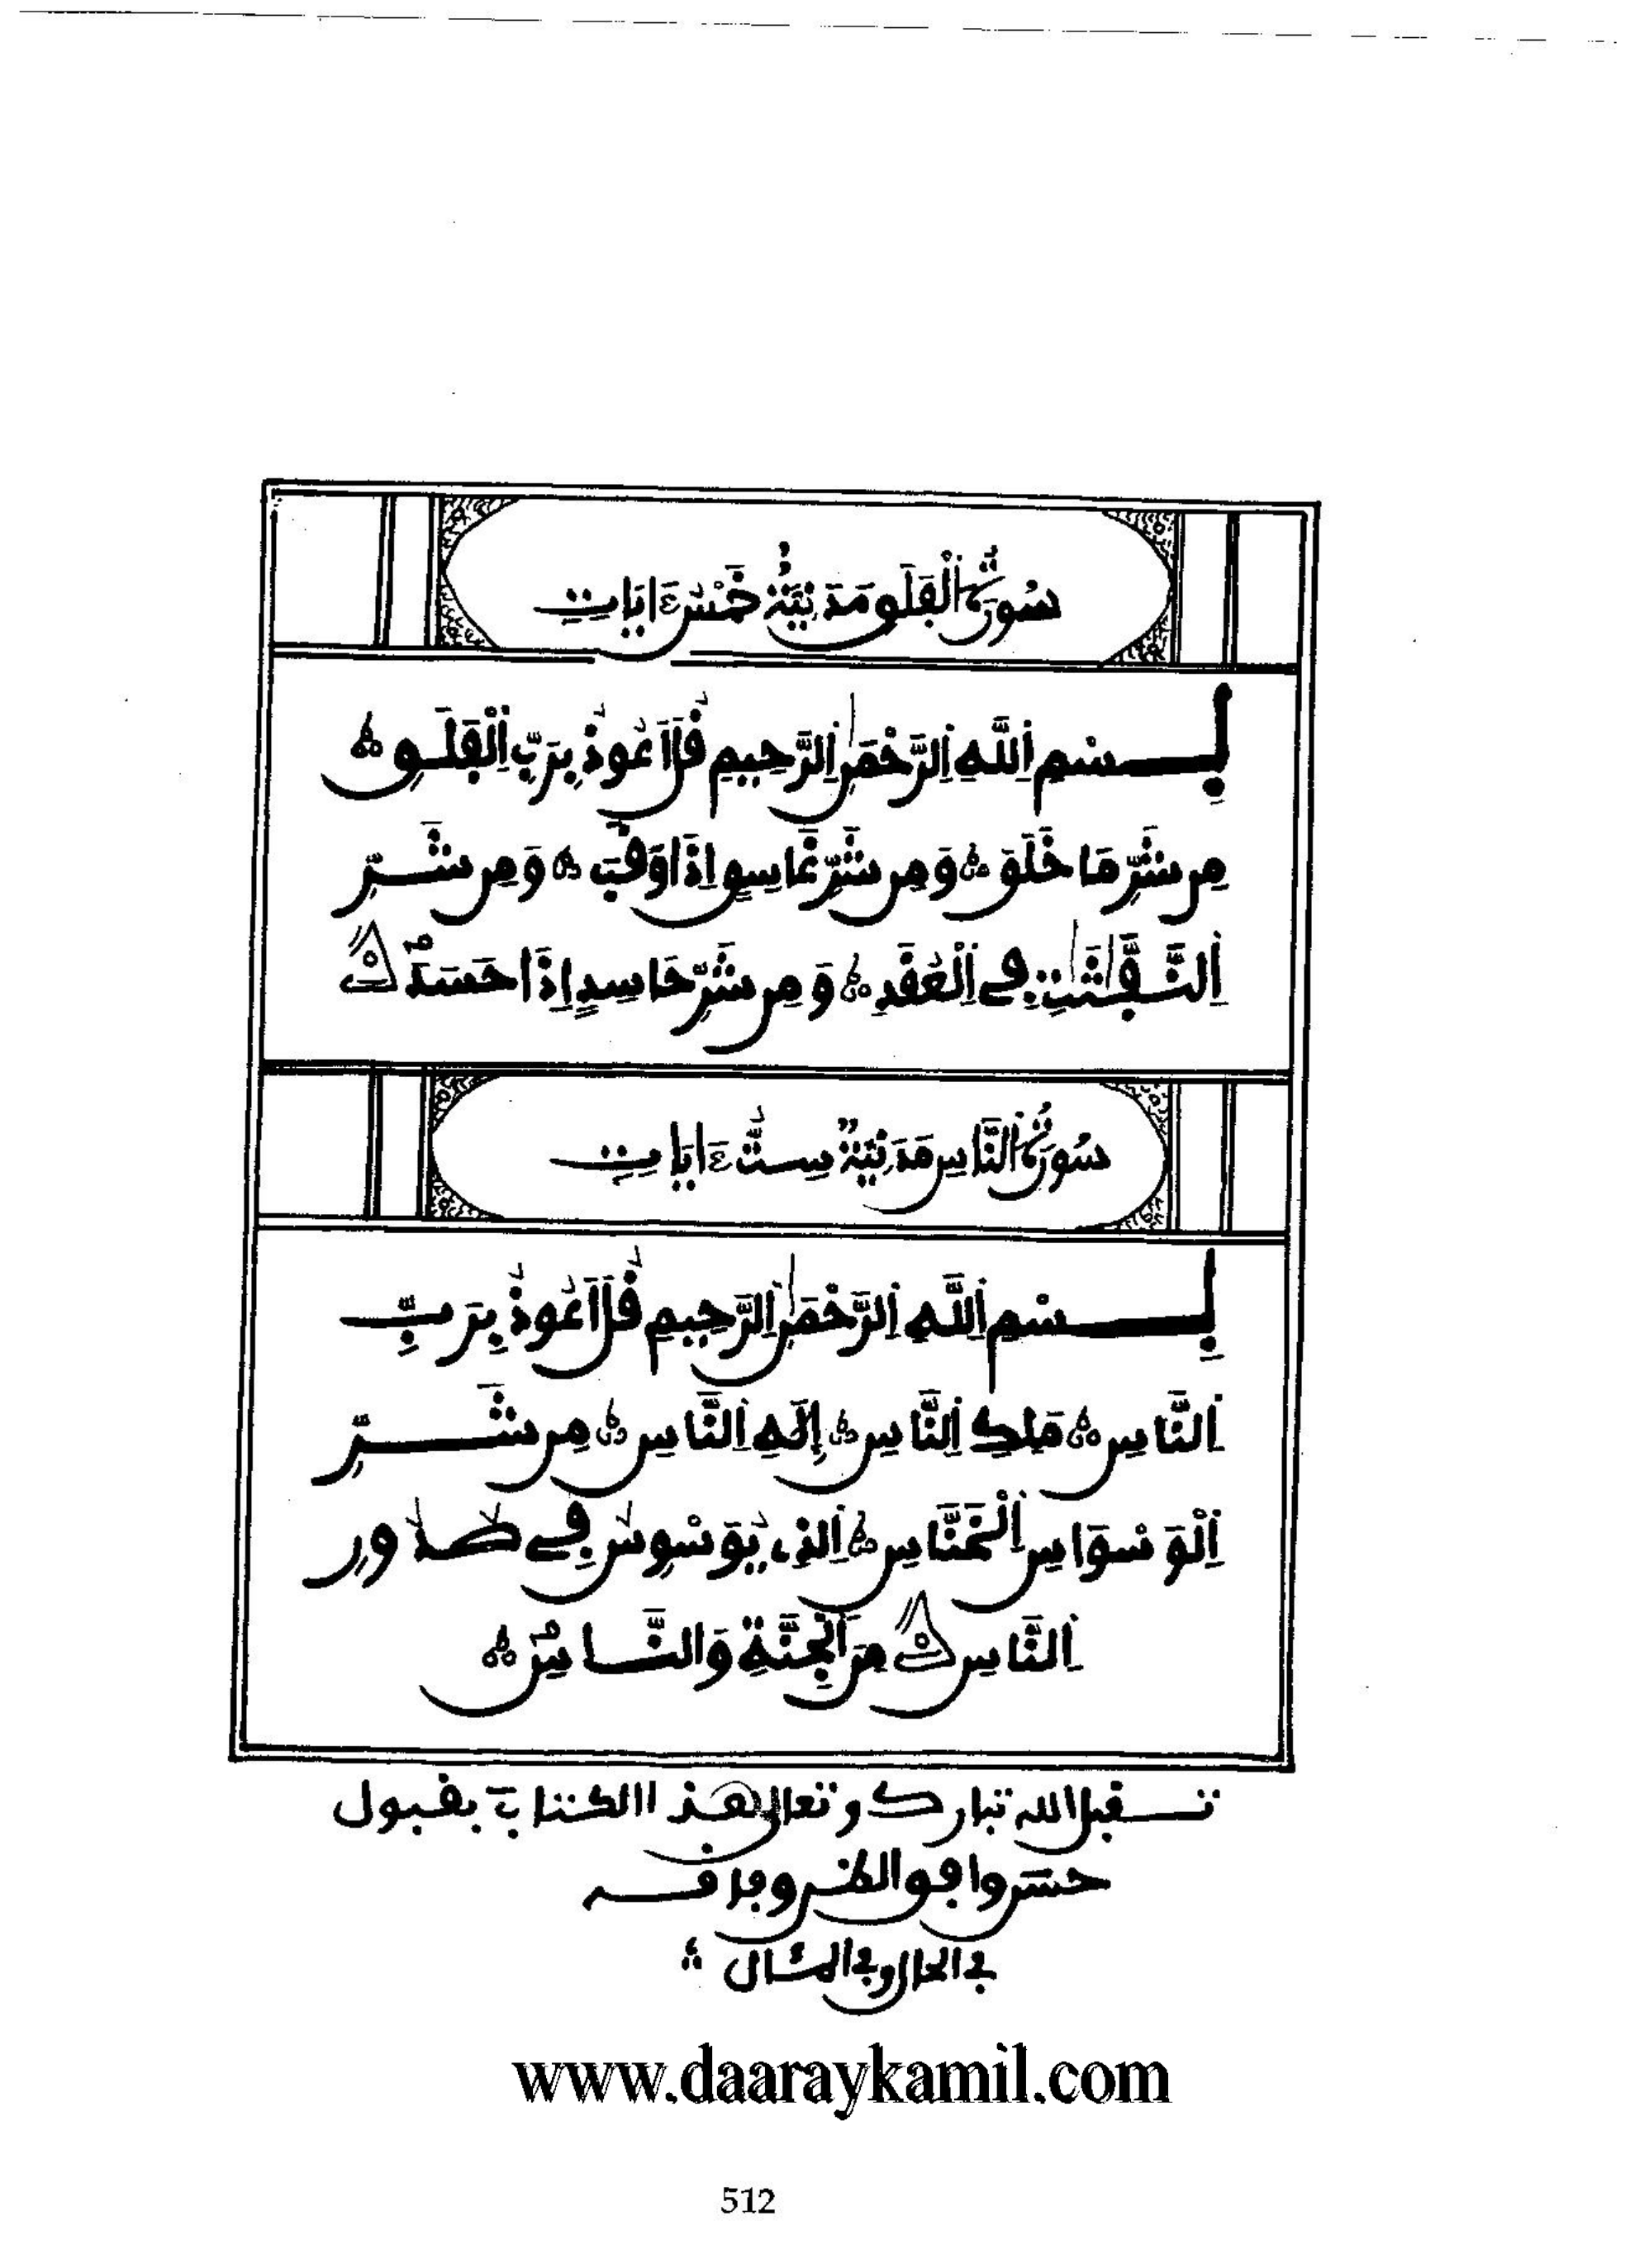 سُورَةُ الْفَلَقِ مَدَنِيَّةٌ خَمْسُ ءَايَاتٍ
بِسْمِ اللَّهِ الرَّحْمَٰنِ الرَّحِيمِ قُلْ أَعُوذُ بِرَبِّ الْفَلَقِ
مِن شَرِّ مَا خَلَقَ وَمِن شَرِّ غَاسِقٍ إِذَا وَقَبَ وَمِن شَرِّ
النَّفَّٰثَٰتِ فِي الْعُقَدِ وَمِن شَرِّ حَاسِدٍ إِذَا حَسَدَ
سُورَةُ النَّاسِ مَدَنِيَّةٌ سِتُّ ءَايَاتٍ
بِسْمِ اللَّهِ الرَّحْمَٰنِ الرَّحِيمِ قُلْ أَعُوذُ بِرَبِّ
النَّاسِ مَلِكِ النَّاسِ إِلَٰهِ النَّاسِ مِن شَرِّ
الْوَسْوَاسِ الْخَنَّاسِ الَّذِي يُوَسْوِسُ فِي صُدُورِ
النَّاسِ مِنَ الْجِنَّةِ وَالنَّاسِ
تقبل الله تبارك وتعالى هذا الكتاب بقبول
حسن وافق الظن وفاقه
في الحال وفي المئال
www.daaraykamil.com
512